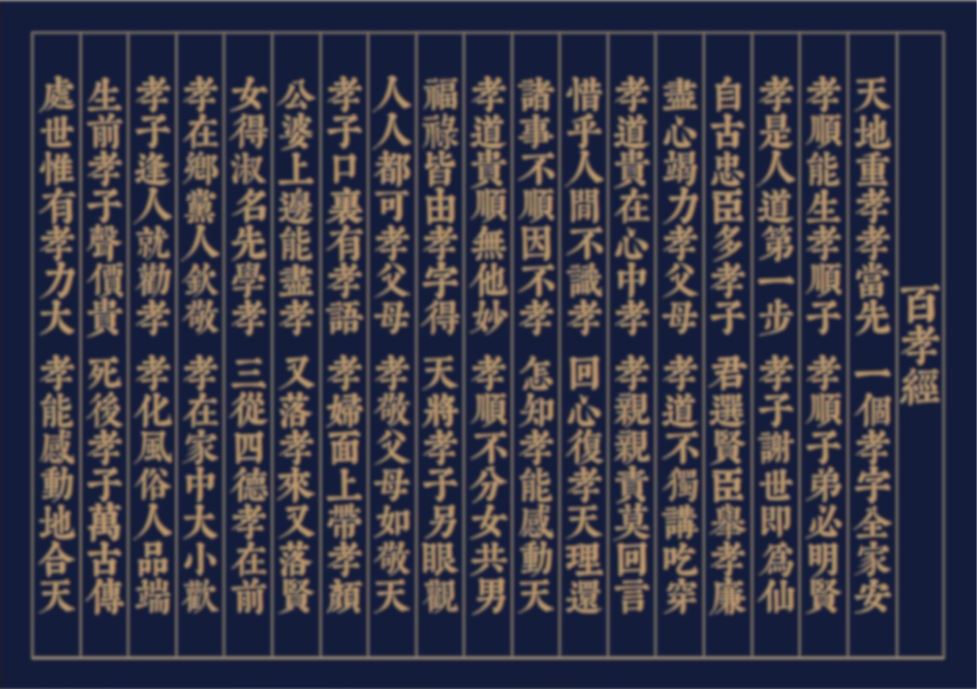 百孝經
天地重孝孝當先 一個孝字全家安
孝順能生孝順子 孝順子弟必明賢
孝是人道第一步 孝子謝世即為仙
自古忠臣多孝子 君選賢臣舉孝廉
盡心竭力孝父母 孝道不獨講吃穿
孝道貴在心中孝 孝親親責莫回言
惜乎人間不識孝 回心復孝天理還
諸事不順因不孝 怎知孝能感動天
孝道貴順無他妙 孝順不分女共男
福祿皆由孝字得 天將孝子另眼觀
人人都可孝父母 孝敬父母如敬天
孝子口裏有孝語 孝婦面上帶孝顏
公婆上邊能盡孝 又落孝來又落賢
女得淑名先學孝 三從四德孝在前
孝在鄉黨人欽敬 孝在家中大小歡
孝子逢人就勸孝 孝化風俗人品端
生前孝子聲價貴 死後孝子萬古傳
處世惟有孝力大 孝能感動地合天